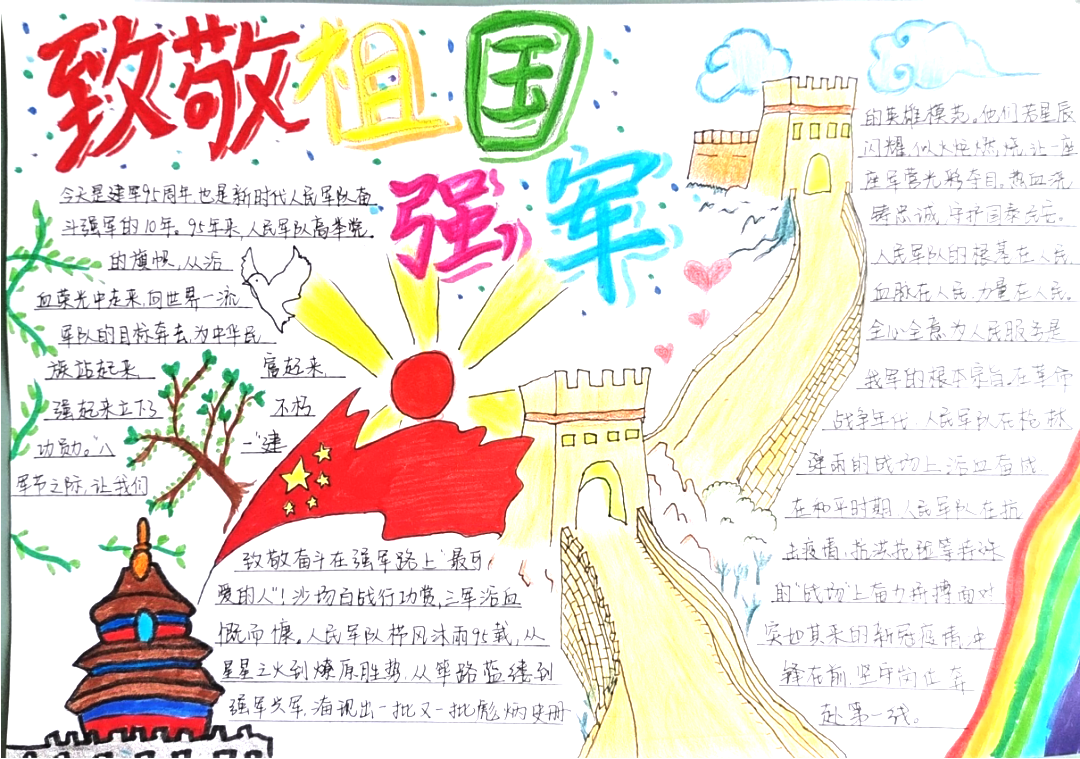 致敬祖国
强军
今天是建军95周年也是新时代人民军队奋
斗强军的10年。95年来,人民军队高举党
的旗帜,从浴
血荣光中走来,向世界一流
军队的目标奔去,为中华民
族站起来 富起来、
强起来立下了 不朽
功勋。"八 一"建
军节之际,让我们
致敬奋斗在强军路上"最可
爱的人"!沙场百战行功赏,三军浴血
慨而慷。人民军队栉风沐雨95载,从
星星之火到燎原胜势,从筚路蓝缕到
强军兴军,涌现出一批又一批彪炳史册
的英雄模范。他们若星辰
闪耀,似火炬燃烧,让一座
座军营光彩夺目。热血浇
铸忠诚,守护国泰民安。
人民军队的根基在人民,
血脉在人民,力量在人民。
全心全意为人民服务是
我军的根本宗旨。在革命
战争年代,人民军队在枪林
弹雨的战场上浴血奋战
在和平时期,人民军队在抗
击疫情、抗洪抢险等特殊
的"战场"上奋力拼搏面对
突如其来的新冠疫情,冲
锋在前,坚守岗位,奔
赴第一线。